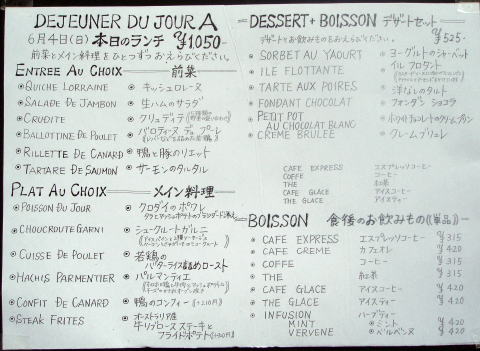 DEJEUNER DU JOUR A
6月4日(日) 本日のランチ ¥1,050-
前菜とメイン料理をひとつずつおえらびください。
ENTREE AU CHOIX 前菜
QUICHE LORRAINE キッシュロレーヌ
SALADE DE JAMBON 生ハムのサラダ
CRUDITE クリュディテ
BALLOTTINE DE POULET バロティーヌ デュ プーレ
RILLETTE DE CANARD 鴨と豚のリエット
TARTARE DE SAUMON サーモンのタルタル
PLAT AU CHOIX メイン料理
POISSON DU JOUR クロダイのポワレ
CHOUCROUTE GARNI シュークルートガルニ
CUISSE DE POULET 若鶏の
バターライス詰めロースト
HACHIS PARMENTIER パルマンティエ
CONFIT DE CANARD 鴨のコンフィ (+210円)
STEAK FRITES オーストラリア産
牛リブロース ステーキと
フライドポテト
DESSERT + BOISSON デザートセット
¥525-
デザートとお飲みものをおえらびください。
SORBET AU YAOURT ヨーグルトのシャーベット
ILE FLOTTANTE イル フロタント
TARTE AUX POIRES 洋なしのタルト
FONDANT CHOCOLAT フォンダン ショコラ
PETIT POT
AU CHOCOLAT BLANC ホワイトチョコレートのクリーム
CREME BRULEE クレームブリュレ
CAFE EXPRESS エスプレッソコーヒー
COFFE コーヒー
THE 紅茶
CAFE GLACE アイスコーヒー
THE GLACE アイスティー
BOISSON 食後のお飲みもの《単品》
CAFE EXPRESS エスプレッソコーヒー ¥315
CAFE CREME カフェオレ ¥420
COFFE コーヒー ¥315
THE 紅茶 ¥315
CAFE GLACE アイスコーヒー ¥420
THE GLACE アイスティー ¥420
INFUSION ハーブティー
MINT ミント ¥420
VERVENE ベルベンヌ ¥420